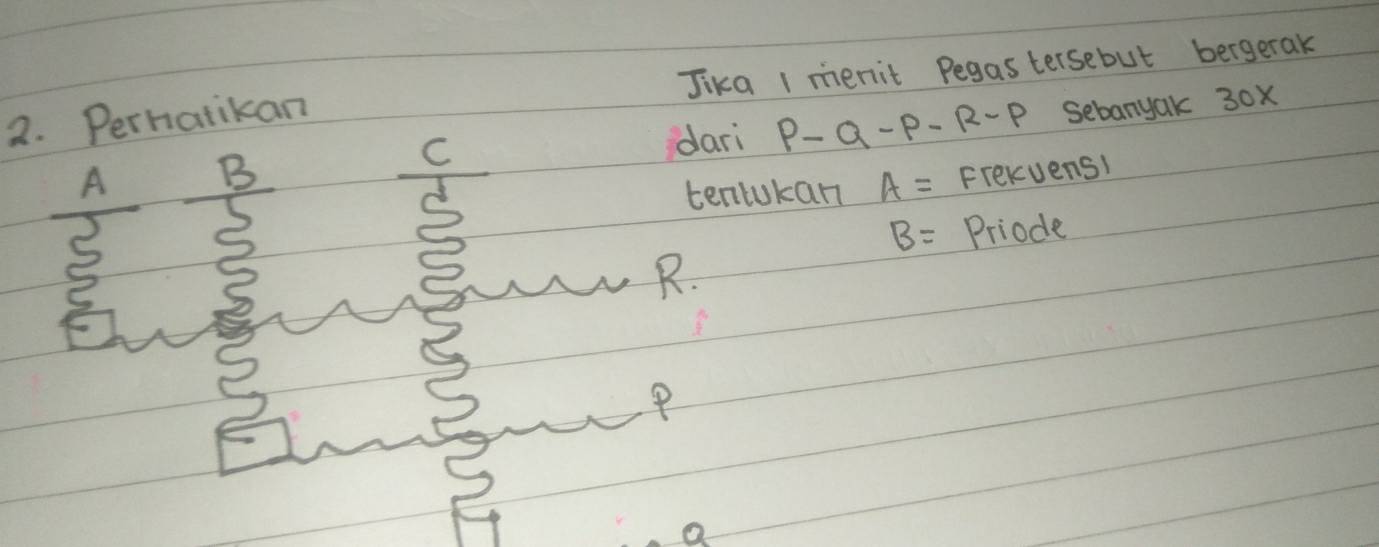 2. Perhatikan
A B C
R.
P
Q
Jika 1 menit Pegas tersebut bergerak
dari P-Q-P-R-P Sebanyak 30x
tentukan A = Frekuensi
B = Priode